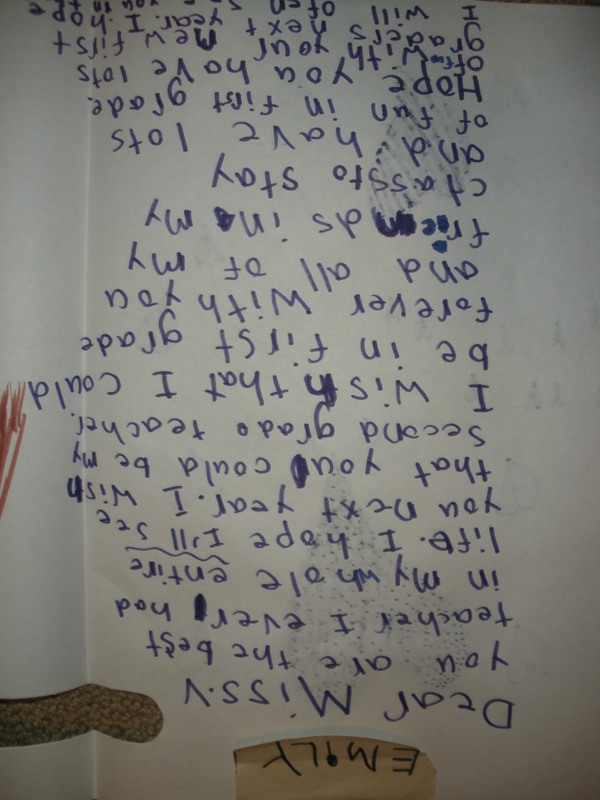 EMiLY
Dear Miss.V
you are the best
teacher I ever had
in my whole entire
life. I hope I'll see
you next year. I wish
that you could be my
second grade teacher.
I wish that I could
be in first grade
forever with you
and all of my
friends in my
class to stay
and have lots
of fun in first grade.
Hope you have lots
of with your new first
graders next year. I hope
I will often